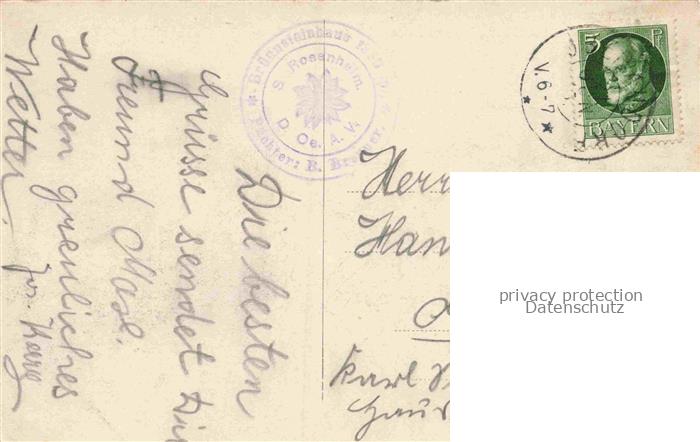 Die besten
Grüsse sendet Dir
Freund Max.
Haben greuliches
Wetter.
Jos. Karg
Brünnsteinhaus
S. Rosenheim.
D. Oe. A. V.
Pächter: B.
V. 6-7
5 Pf
BAYERN
Herr
Han
Karl
Haus
privacy protection
Datenschutz